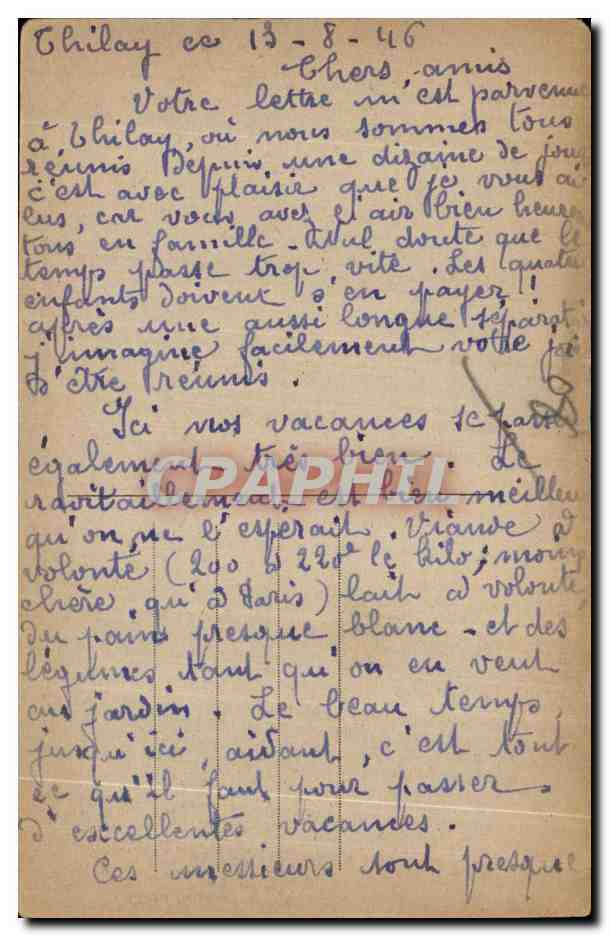 Thilay ce 13-8-46
Chers amis
Votre lettre m'est parvenue
à Thilay, où nous sommes tous
réunis depuis une dizaine de jours
c'est avec plaisir que je vous ai
lus, car vous avez l'air bien heureux
tous en famille. Nul doute que le
temps passe trop vite. Les quatre
enfants doivent s'en payer!
après une aussi longue séparation
j'imagine facilement votre joie
d'être réunis.
Ici nos vacances se passent
également très bien. Le
CPAPHIL
ravitaillement est bien meilleur
qu'on ne l'espérait. Viande à
volonté (200 à 220 le kilo, moins
chère qu'à Paris) lait à volonté,
du pain presque blanc - et des
légumes tant qu'on en veut
au jardin. Le beau temps,
jusqu'ici, aidant, c'est tout
ce qu'il faut pour passer
d'excellentes vacances.
Ces messieurs sont presque